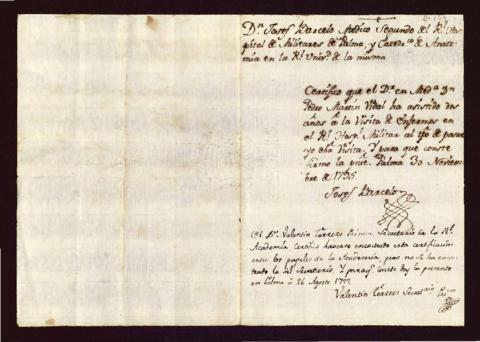 Dn. Josef Barcelo Medico Segundo del Rl. Hos
pital de Militares de Palma, y Catedco. de Anato
mia en la Rl. Univd. de la misma
Certifico que el Dr. en Meda. Dn
Pedro Martin Vidal ha asistido dos
años a la Visita de Enfermos en
el Rl. Hospl. Militar al tpo. de pasar
yo dha. Visita, Y para que conste
firmo la pnte. Palma 30 Noviem
bre de 1795
Josef Barcelo
El Dr. Valentin Terrers Primer Secretario de la Rl.
Academia Certifico haverse encontrado esta certificacion
entre los papeles de la Academia, pero no se ha encon
trado la del Secretario, Y paraq. conste doy la presente
en Palma á 26 Agosto
Valentin Terrers Secretario